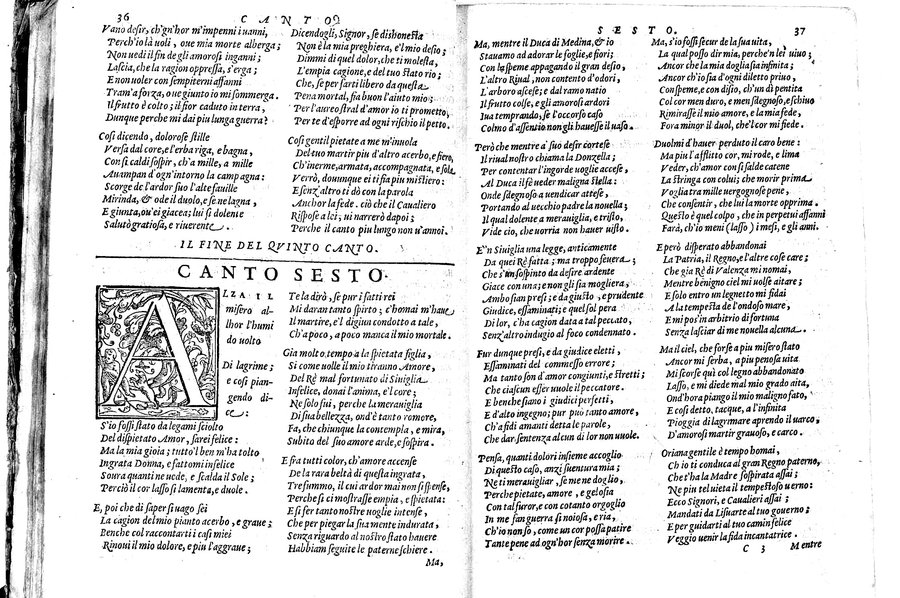 36 CANTO
Vano desir, ch'ogn'hor m'impenni i vanni,
Perch'io là uoli, oue mia morte alberga;
Non uedi il fin de gli amorosi inganni;
Lascia, che la ragion oppressa, s'erga;
E non uoler con sempiterni affanni
Tram'a forza, oue giunto io mi sommerga.
Il frutto è colto; il fior caduto in terra,
Dunque perche mi dai piu lunga guerra?
Cosi dicendo, dolorose stille
Versa dal core, e l'erba riga, e bagna,
Con sì caldi sospir, ch'a mille, a mille
Auampan d'ogn'intorno la campagna:
Scorge de l'ardor suo l'alte fauille
Mirinda, & ode il duolo, e se ne lagna,
E giunta, ou'ei giacea; lui sì dolente
Salutò gratiosa, e riuerente.
Dicendogli, Signor, se dishonesta
Non è la mia preghiera, e'l mio desio;
Dimmi di quel dolor, che ti molesta,
L'empia cagione, e del tuo stato rio;
Che, se per farti libero da questa
Pena mortal, fia buon l'aiuto mio;
Per l'aureo stral d'amor io ti prometto,
Per te d'esporre ad ogni rischio il petto.
Cosi gentil pietate a me m'inuola
Del tuo martir piu d'altro acerbo, e fiero,
Ch'inerme, armata, accompagnata, e sola
Verrò, dounque ei ti fia piu mistiero:
E senz'altro ti dò con la parola
Anchor la fede. ciò che il Caualiero
Rispose a lei; ui narrerò dapoi;
Perche il canto piu lungo non u'annoi.
IL FINE DEL QVINTO CANTO.
CANTO SESTO.
ALZA IL
misero al-
lhor l'humi
do uolto
Di lagrime;
e cosi pian-
gendo di-
ce:
S'io fossi stato da legami sciolto
Del dispietato Amor, sarei felice:
Ma la mia gioia; tutto'l ben m'ha tolto
Ingrata Donna, e fattomi infelice
Soura quanti ne uede, e scalda il Sole;
Perciò il cor lasso si lamenta, e duole.
E, poi che di saper sì uago sei
La cagion del mio pianto acerbo, e graue;
Benche col raccontarti i casi miei
Rinoui il mio dolore, e piu l'aggraue;
Te la dirò, se pur i fatti rei
Mi daran tanto spirto; c'homai m'haue
Il martire, e'l digiun condotto a tale,
Ch'a poco, a poco manca il mio mortale.
Gia molto tempo a la spietata figlia,
Si come uolle il mio tiranno Amore,
Del Rè mal fortunato di Siuiglia
Inuolse, donai l'anima, e'l core;
Ne solo fui, perche la merauiglia
Di sua bellezza, ond'è tanto romore,
Fa, che chiunque la contempla, e mira,
Subito del suo amore arde, e sospira.
E fra tutti color, ch'amore accense
De la rara beltà di questa ingrata,
Tre summo, il cui ardor mai non si spense,
Perche se ci mostrasse empia, e spietata:
E si fer tanto nostre uoglie intense,
Che per piegar la sua mente indurata,
Senza riguardo al nostro stato hauere
Habbiam seguite le paterne schiere.
Ma,
SESTO. 37
Ma, mentre il Duca di Medina, & io
Stauamo ad adorar le foglie, e fiori;
Con la speme appagando il gran desio,
L'altro Riual, non contento d'odori,
L'arbore ascese; e dal ramo natio
Il frutto colse, e gli amorosi ardori
Iua temprando, se l'occorso caso
Colmo d'assentio non gli hauesse il uaso.
Però che mentre a' suo desir cortese
Il riual nostro chiama la Donzella;
Per contentar l'ingorde uoglie accese,
Al Duca il fè ueder maligna stella:
Onde sdegnoso a uendicar attese,
Portando al uecchio padre la nouella;
Il qual dolente a merauiglia, e tristo,
Vide ciò, che uorria non hauer uisto.
E'n Siuiglia una legge, anticamente
Da quei Rè fatta; ma troppo seuera;
Che s'un sospinto da desire ardente
Giace con una; e non gli sia mogliera,
Ambo sian presi; e da giusto, e prudente
Giudice, essaminati; e quel sol pera
Di lor, c'ha cagion data a tal peccato,
Senz'altro indugio al foco condennato.
Fur dunque presi, e da giudice eletti,
Essaminati del commesso errore;
Ma tanto son d'amor congiunti, e stretti;
Che ciascun esser uuole il peccatore.
E benche siano i giudici perfetti,
E d'alto ingegno; pur può tanto amore,
Ch'a fidi amanti detta le parole,
Che dar sentenza alcun di lor non uuole.
Pensa, quanti dolori insieme accoglio
Di questo caso, anzi suentura mia;
Ne ti merauigliar, se me ne doglio,
Perche pietate, amore, e gelosia
Con tal furor, e con cotanto orgoglio
In me fan guerra sì noiosa, e ria,
Ch'io non so, come un cor possa patire
Tante pene ad ogn'hor senza morire.
Ma, s'io fossi secur de la sua uita,
La qual posso dir mia, perche'n lei uiuo;
Ancor che la mia doglia sia infinita;
Ancor ch'io sia d'ogni diletto priuo,
Con speme, e con disio, ch'un dì pentita
Col cor men duro, e men sdegnoso, e schiuo
Rimirasse il mio amore, e la mia fede,
Fora minor il duol, che'l cor mi fiede.
Duolmi d'hauer perduto il caro bene:
Ma piu l'afflitto cor, mi rode, e lima
Veder, ch'amor con sì salde catene
La stringa con colui; che morir prima
Voglia tra mille uergognose pene,
Che consentir, che lui la morte opprima.
Questo è quel colpo, che in perpetui affanni
Farà, ch'io meni (lasso) i mesi, e gli anni.
E però disperato abbandonai
La Patria, il Regno, e l'altre cose care;
Che già Rè di Valenza mi nomai,
Mentre benigno ciel mi uolse aitare;
E solo entro un legnetto mi fidai
A la tempesta de l'ondoso mare,
E mi pos'in arbitrio di fortuna
Senza lasciar di me nouella alcuna.
Ma il ciel, che forse a piu misero stato
Ancor mi serba, a piu penosa uita
Mi scorse quì col legno abbandonato
Lasso, e mi diede mal mio grado aita,
Ond'hora piango il mio maligno fato,
E cosi detto, tacque, a l'infinita
Pioggia di lagrimar aprendo il uarco,
D'amorosi martir grauoso, e carco.
Oriana gentile è tempo homai,
Ch'io ti conduca al gran Regno paterno,
Che t'ha la Madre sospirata assai;
Ne piu tel uieta il tempestoso uerno:
Ecco Signori, e Caualieri assai;
Mandati da Lisuarte al tuo gouerno;
E per guidarti al tuo camin felice
Veggio uenir la fida incantatrice.
C 3 Mentre